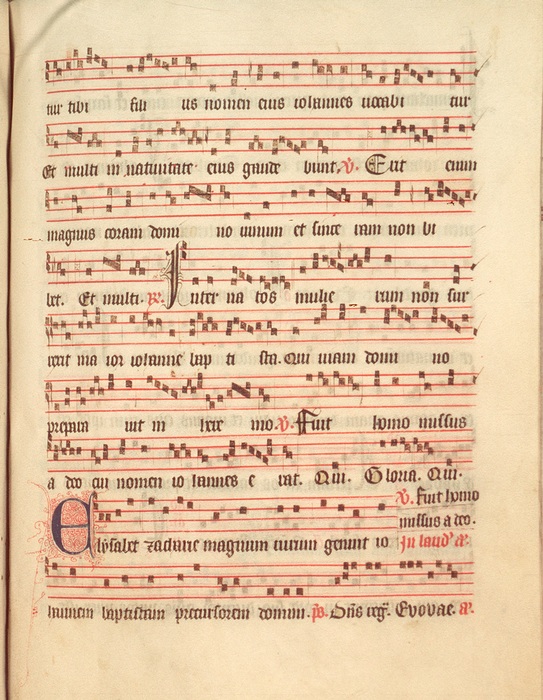 tur tibi fili us nomen eius iohannes uocabi tur
Et multi in natiuitate eius gaude bunt. V. Erit enim
magnus coram domi no uinum et sice ram non bi
bet. Et multi. R. Inter na tos mulie rum non sur
rexit ma ior iohanne bap ti sta. Qui uiam domi no
prepara uit in here mo. V. Fuit homo missus
a deo cui nomen io hannes e rat. Qui. Gloria. Qui.
V. Fuit homo
missus a deo.
Elysabet zacharie magnum uirum genuit io In laud' a.
hannem baptistam precursorem domini. ps. Dns reg. Evovae. a.